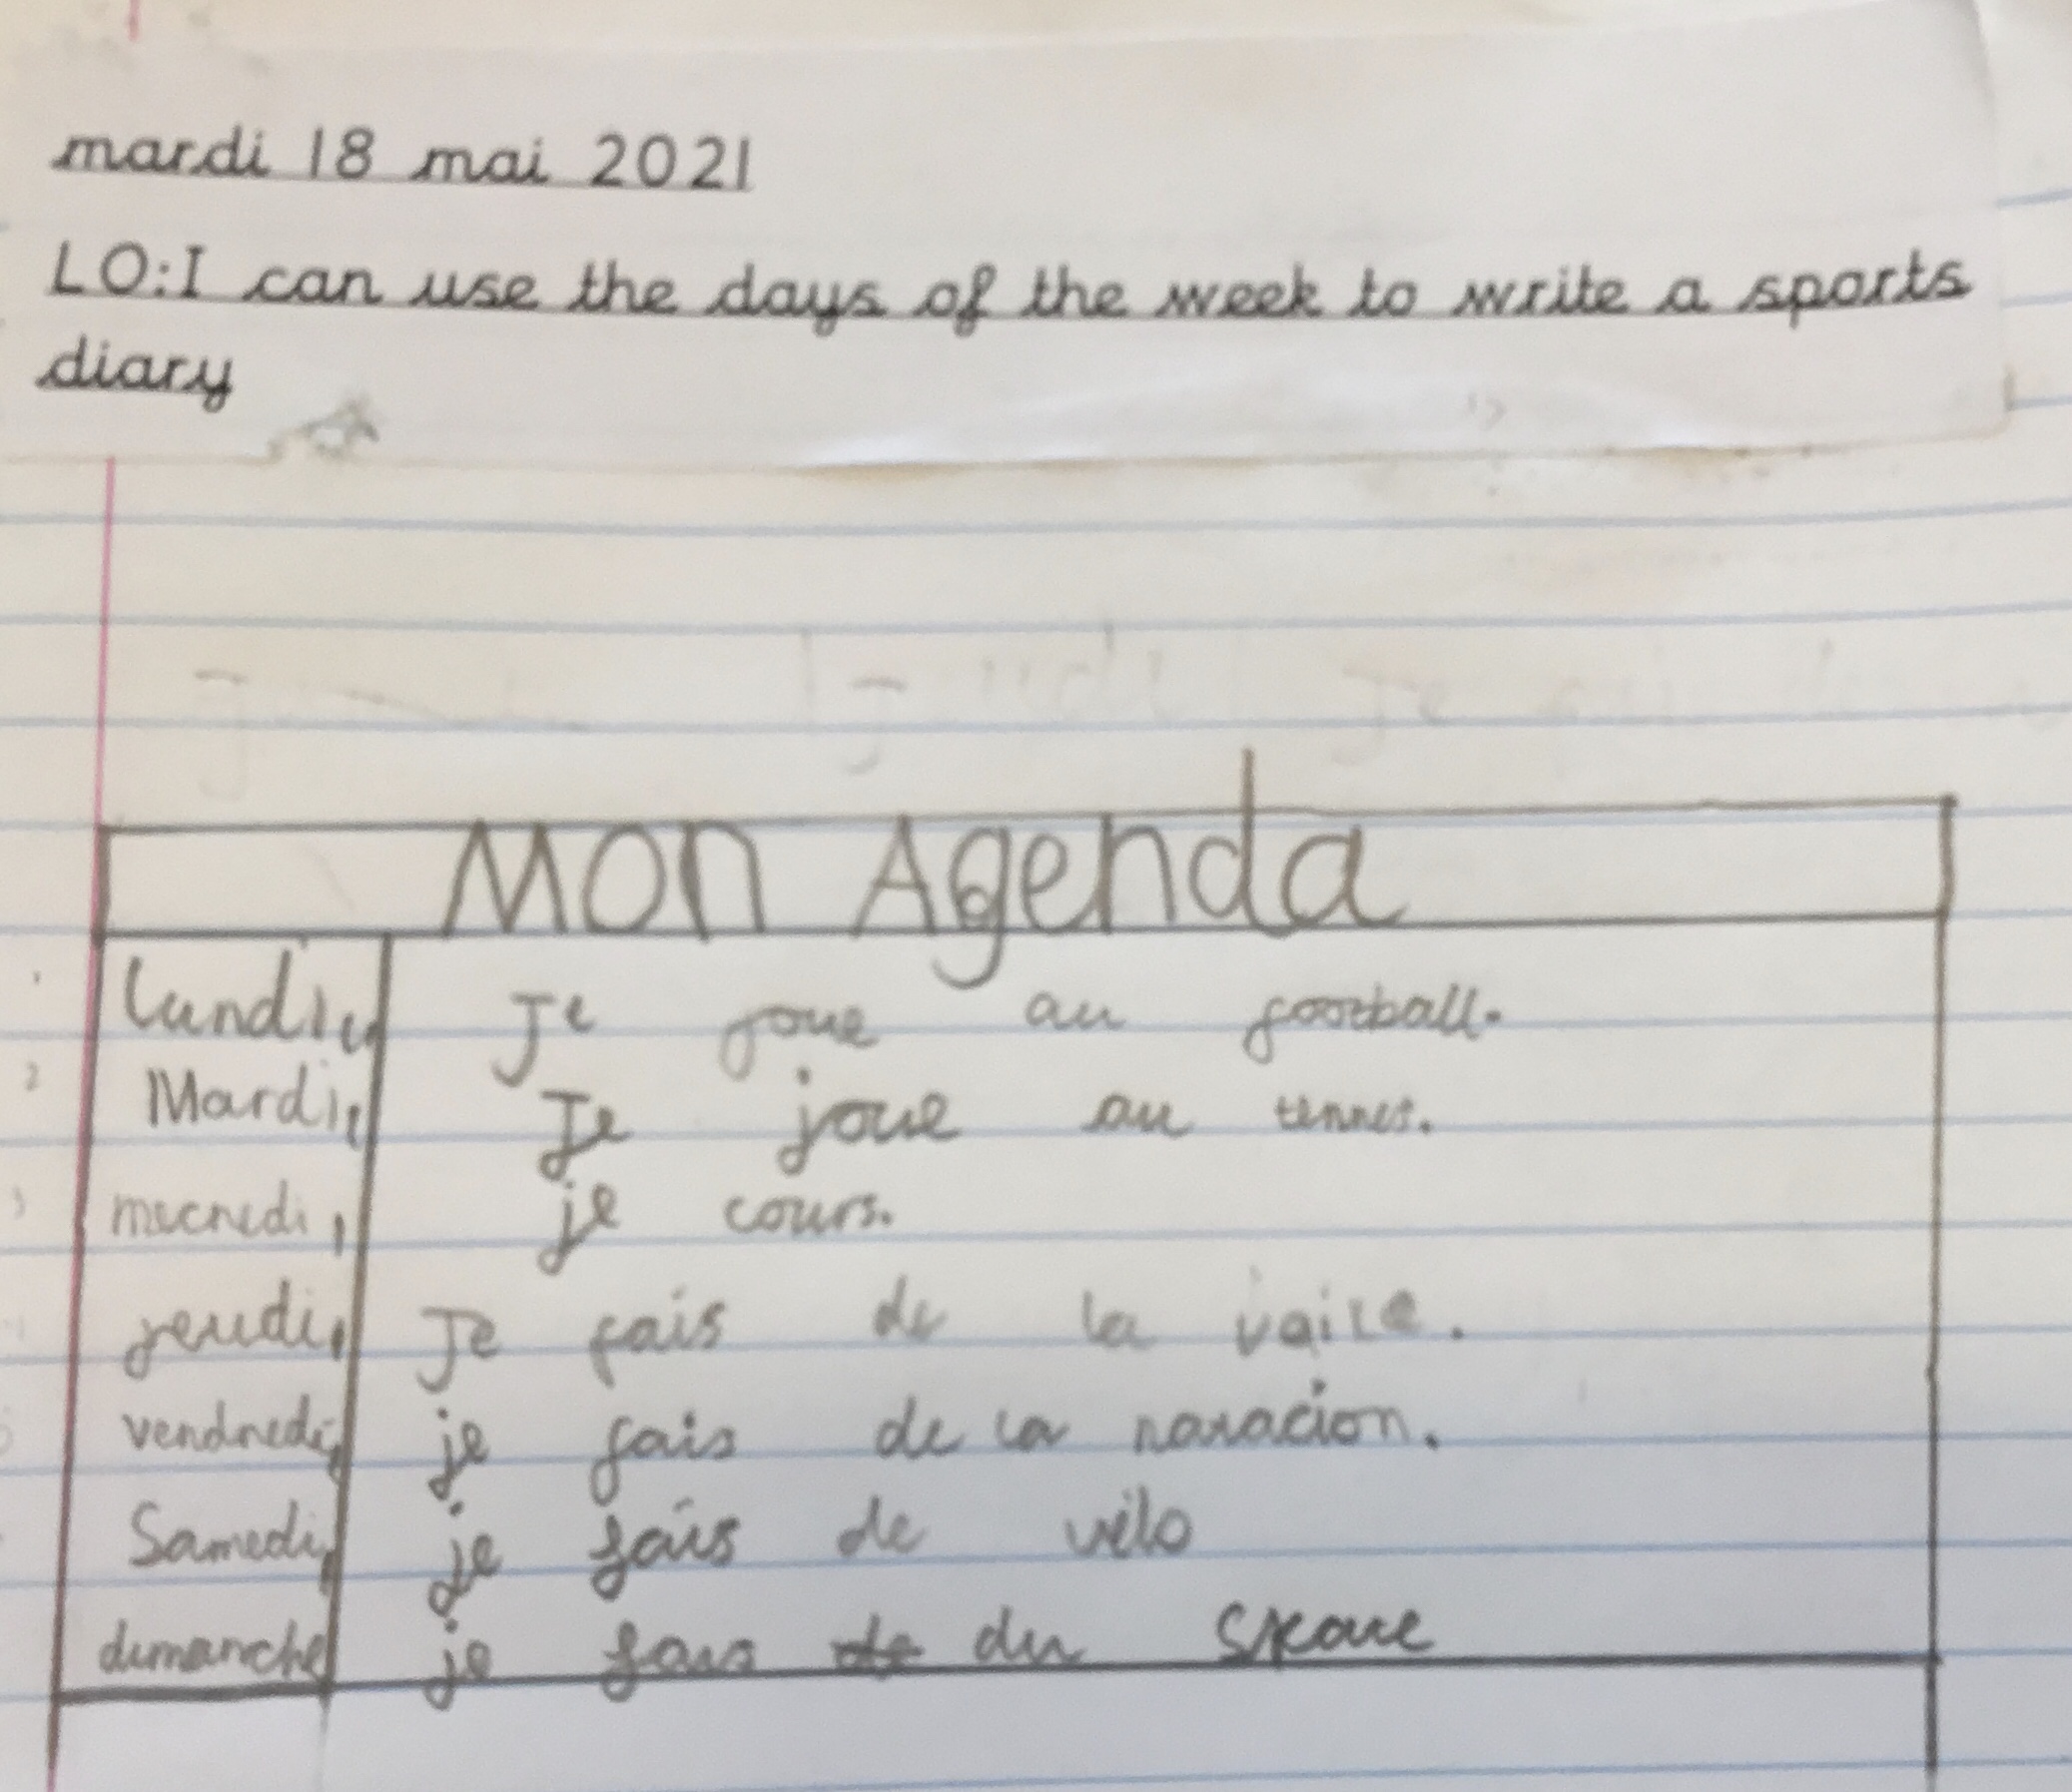 mardi 18 mai 2021
LO:I can use the days of the week to write a sports
diary
Mon Agenda
lundi, Je joue au football.
Mardi, Je joue au tennes.
mecredi, je cours.
jeudi, Je fais de la vaile.
vendredi, je fais de la
Samedi, je fais de vélo
dimanche je fais de du